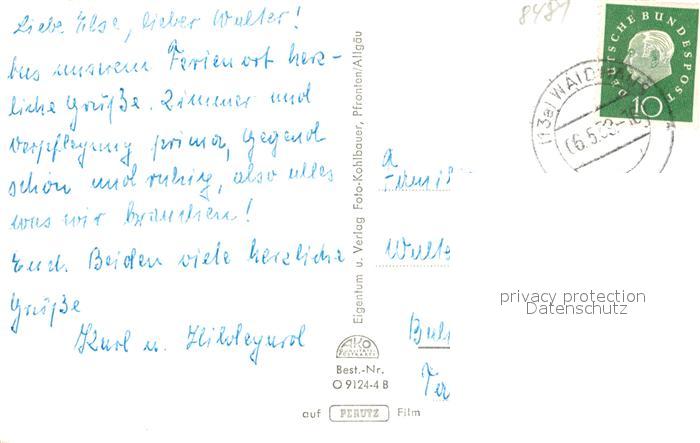 Liebe Else, lieber Walter!
Aus unserem Ferienort herz-
liche Grüße. Zimmer und
Verpflegung prima, Gegend
schön und ruhig, also alles
was wir brauchen!
Euch Beiden viele herzliche
Grüße
Karl u. Hildegard
Eigentum u. Verlag Foto-Kohlbauer, Pfronten/Allgäu
AKO
Best.-Nr.
O 9124-4 B
auf PERUTZ Film
8484
DEUTSCHE BUNDESPOST
10
(13a) WAID
privacy protection
Datenschutz